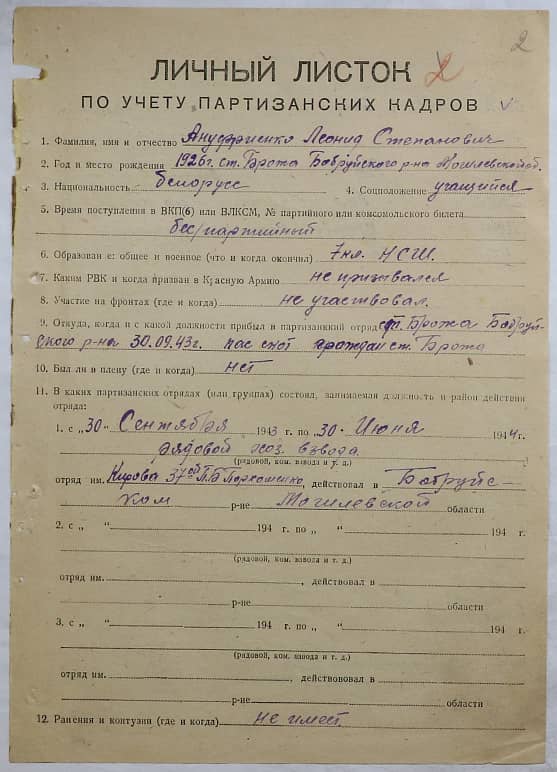 2
ЛИЧНЫЙ ЛИСТОК 2
ПО УЧЕТУ ПАРТИЗАНСКИХ КАДРОВ
1. Фамилия, имя и отчество Ануфриенко Леонид Степанович
2. Год и место рождения 1926 г. ст. Брожа Бобруйского р-на Могилевской об.
3. Национальность белорусс 4. Соцположение учащийся
5. Время поступления в ВКП(б) или ВЛКСМ, № партийного или комсомольского билета
бес/партийный
6. Образование: общее и военное (что и когда окончил) 7 кл. НСШ.
7. Каким РВК и когда призван в Красную Армию не призывался
8. Участие на фронтах (где и когда) не участвовал.
9. Откуда, когда и с какой должности прибыл в партизанский отряд ст. Брожа Бобруй-
ского р-на 30.09.43г. граждан ст. Брожа
10. Был ли в плену (где и когда) нет
11. В каких партизанских отрядах (или группах) состоял, занимаемая должность и район действия
отряда:
1. с „30" Сентября 1943 г. по 30 Июня 1944 г.
рядовой хоз. взвода.
(рядовой, ком. взвода и т. д.)
отряд им. Кирова 37ой П.Б. Пархоменко, действовал в Бобруйс-
ком р-не Могилевской области
2, с „ " 194 г. по „ " 194 г.
(рядовой, ком. взвода и т. д.)
отряд им. , действовал в
р-не области
3, с „ " 194 г. по „ " 194 г.
(рядовой, ком. взвода и т. д.)
отряд им. , действовал в
р-не области
12. Ранения и контузии (где и когда) не имеет.